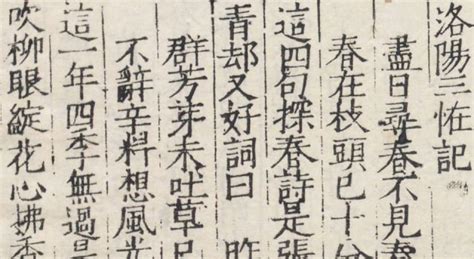 洛陽三恠記
盡日尋春不見春
春在枝頭已十分
這四句探春詩是張
青却又好詞曰 昨
群芳芽未吐草
不辭辛料想風光
這一年四季無過是
吹柳眼綻花心拂香